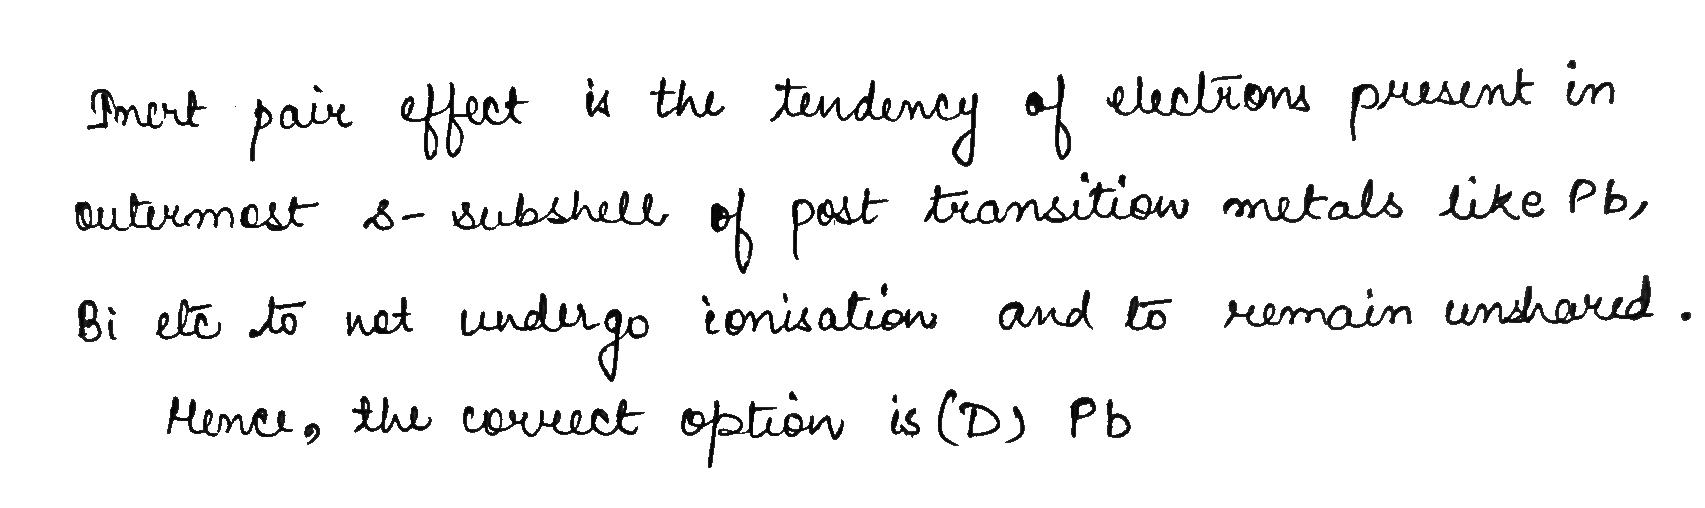 Inert pair effect is the tendency of electrons present in
outermost s- subshell of post transition metals like Pb,
Bi etc to not undergo ionisation and to remain unshared.
Hence, the correct option is (D) Pb